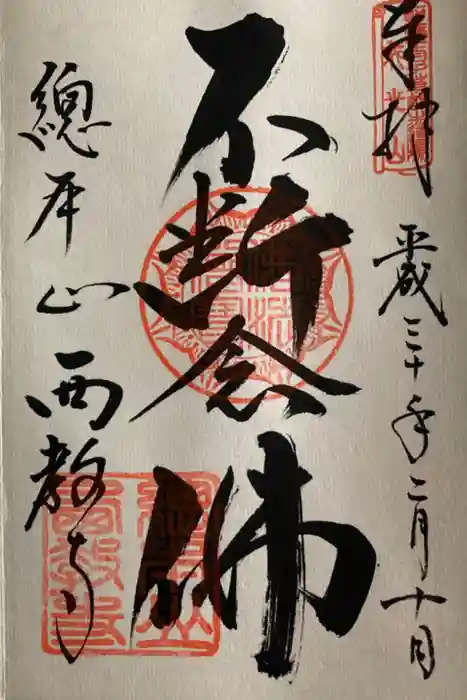 奉拝
平成三十年二月十日
不断念佛
總本山西教寺